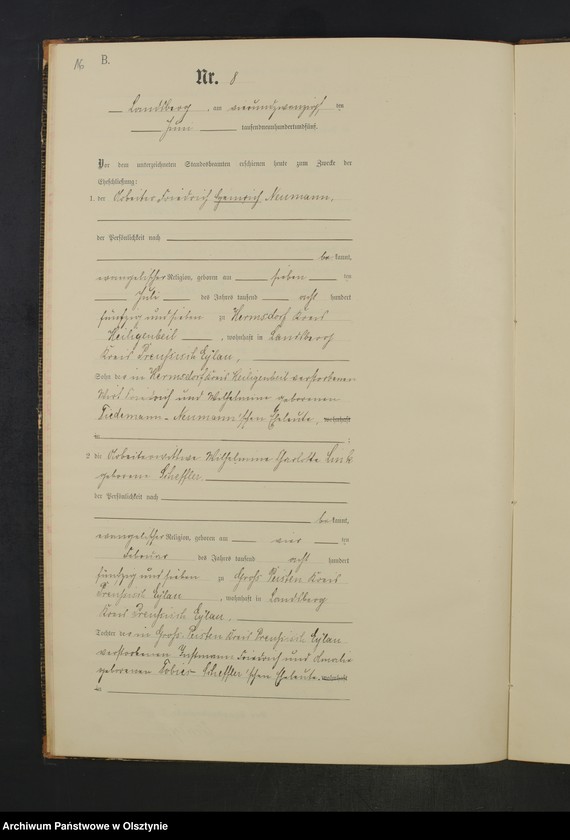 16 B.
Nr. 8
Landsberg, am vierundzwanzigsten
Juni tausendneunhundertundfünf.
Vor dem unterzeichneten Standesbeamten erschienen heute zum Zwecke der
Eheschließung:
1. der Arbeiter Friedrich Heinrich Neumann,
der Persönlichkeit nach
be kannt,
evangelischer Religion, geboren am sieben ten
Juli des Jahres tausend acht hundert
fünfzig und sieben zu Hermsdorf Kreis
Heiligenbeil, wohnhaft in Landsberg
Kreis Preußisch Eylau,
Sohn des in Hermsdorf Kreis Heiligenbeil verstorbenen
Wirt Friedrich und Wilhelmine geborenen
Tiedemann-Neumann'schen Eheleute, wohnhaft
in ;
2. die Arbeiterwittwe Wilhelmine Charlotte Link
geborene Scheffler
der Persönlichkeit nach
be kannt,
evangelischer Religion, geboren am vier ten
Februar des Jahres tausend acht hundert
fünfzig und sieben zu Groß Peisten Kreis
Preußisch Eylau, wohnhaft in Landsberg
Kreis Preußisch Eylau,
Tochter des in Groß Peisten Kreis Preußisch Eylau
verstorbenen Instmann Friedrich und Amalie
geborenen Tobies-Scheffler'schen Eheleute, wohnhaft
in
Archiwum Państwowe w Olsztynie